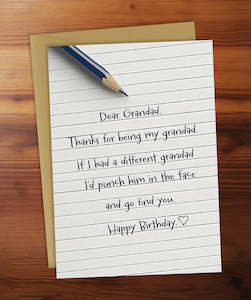 Dear Grandad,
Thanks for being my grandad.
If I had a different grandad
I'd punch him in the face
and go find you.
Happy Birthday.♡